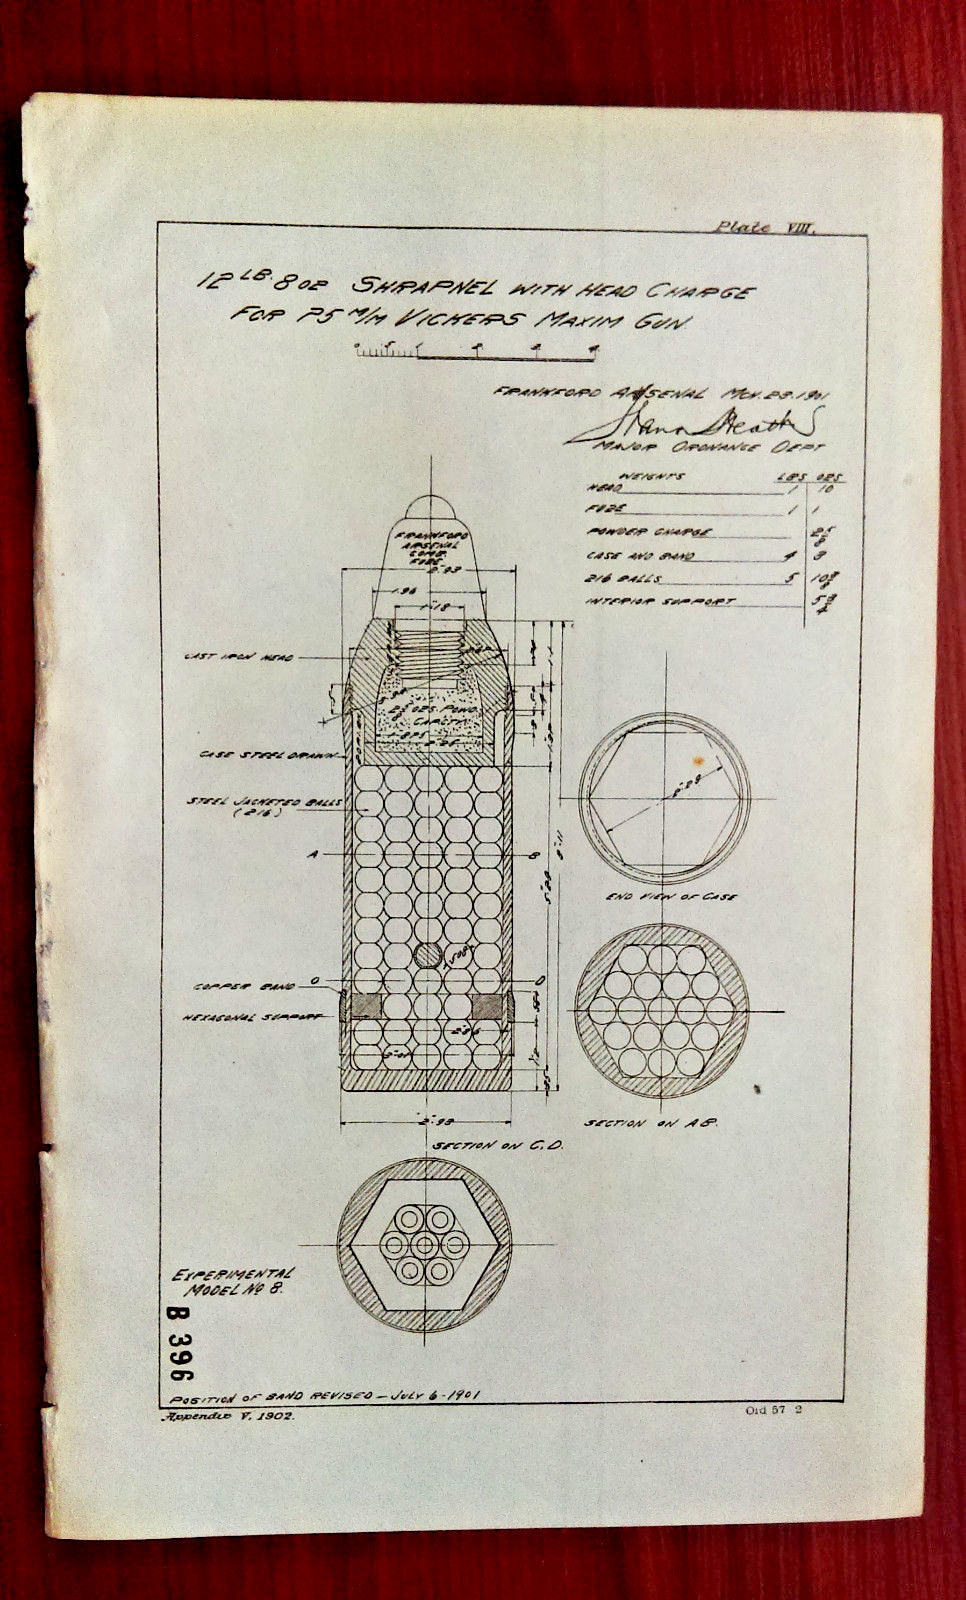 Plate VIII.
12 LB. 8 oz SHRAPNEL WITH HEAD CHARGE
FOR 75 M/M VICKERS MAXIM GUN.
FRANKFORD ARSENAL
MAJOR ORDNANCE DEPT
WEIGHTS LBS OZS
HEAD 1 10
FUZE 1 1
POWDER CHARGE 2 5/8
CASE AND BAND 4 8
216 BALLS 5
INTERIOR SUPPORT
FRANKFORD
ARSENAL
COMB.
FUZE.
2".93
1.96
1".18
CAST IRON HEAD
OZS. POWD.
CAPACITY
CASE STEEL DRAWN
STEEL JACKETED BALLS
(216)
A B
END VIEW OF CASE
COPPER BAND
HEXAGONAL SUPPORT
2".93
SECTION ON A B.
SECTION ON C. D.
EXPERIMENTAL
MODEL No 8.
B 396
POSITION OF BAND REVISED — JULY 6 - 1901
Appendix V. 1902.
Ord 57 2